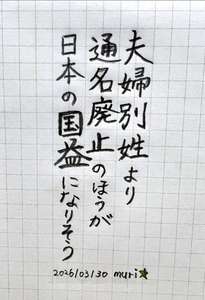 夫婦別姓より
通名廃止のほうが
日本の国益になりそう
2026/03/30 muri★